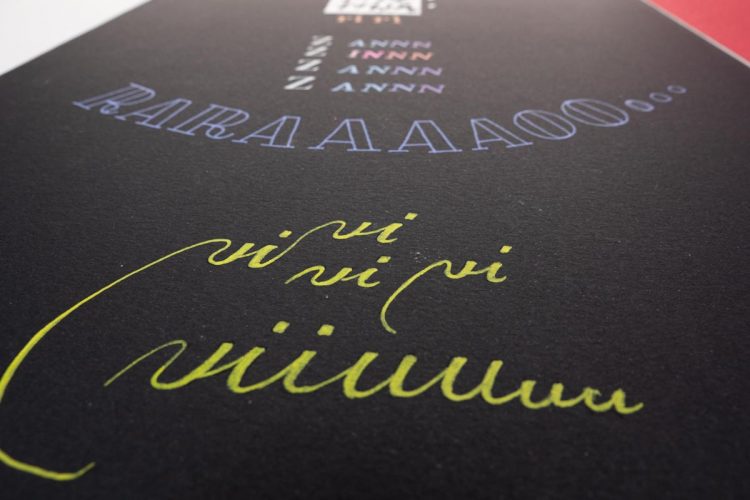 FI FI
NNSS ANNN
INNN
ANNN
ANNN
RARAAAAAOO...
vi vi
vi vi
viiuuuuu